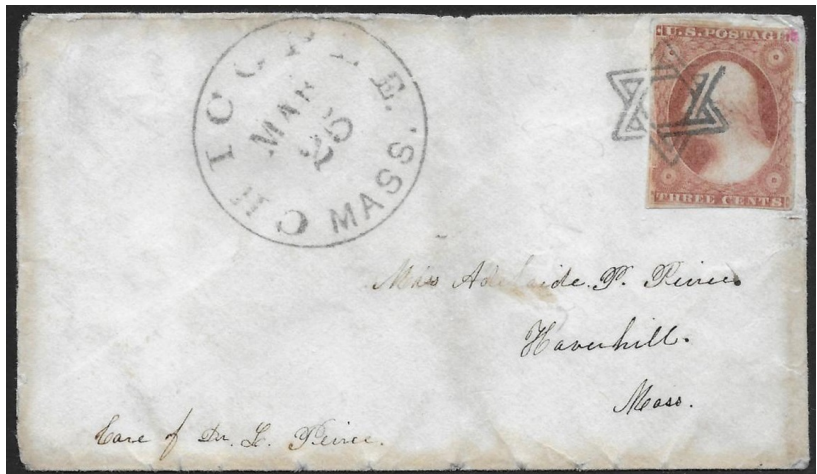 CHICOPEE.
MAR
25
MASS.
U.S. POSTAGE
THREE CENTS
Miss Adelaide. P. Peirce
Haverhill.
Mass.
Care of Dr. L. Peirce.